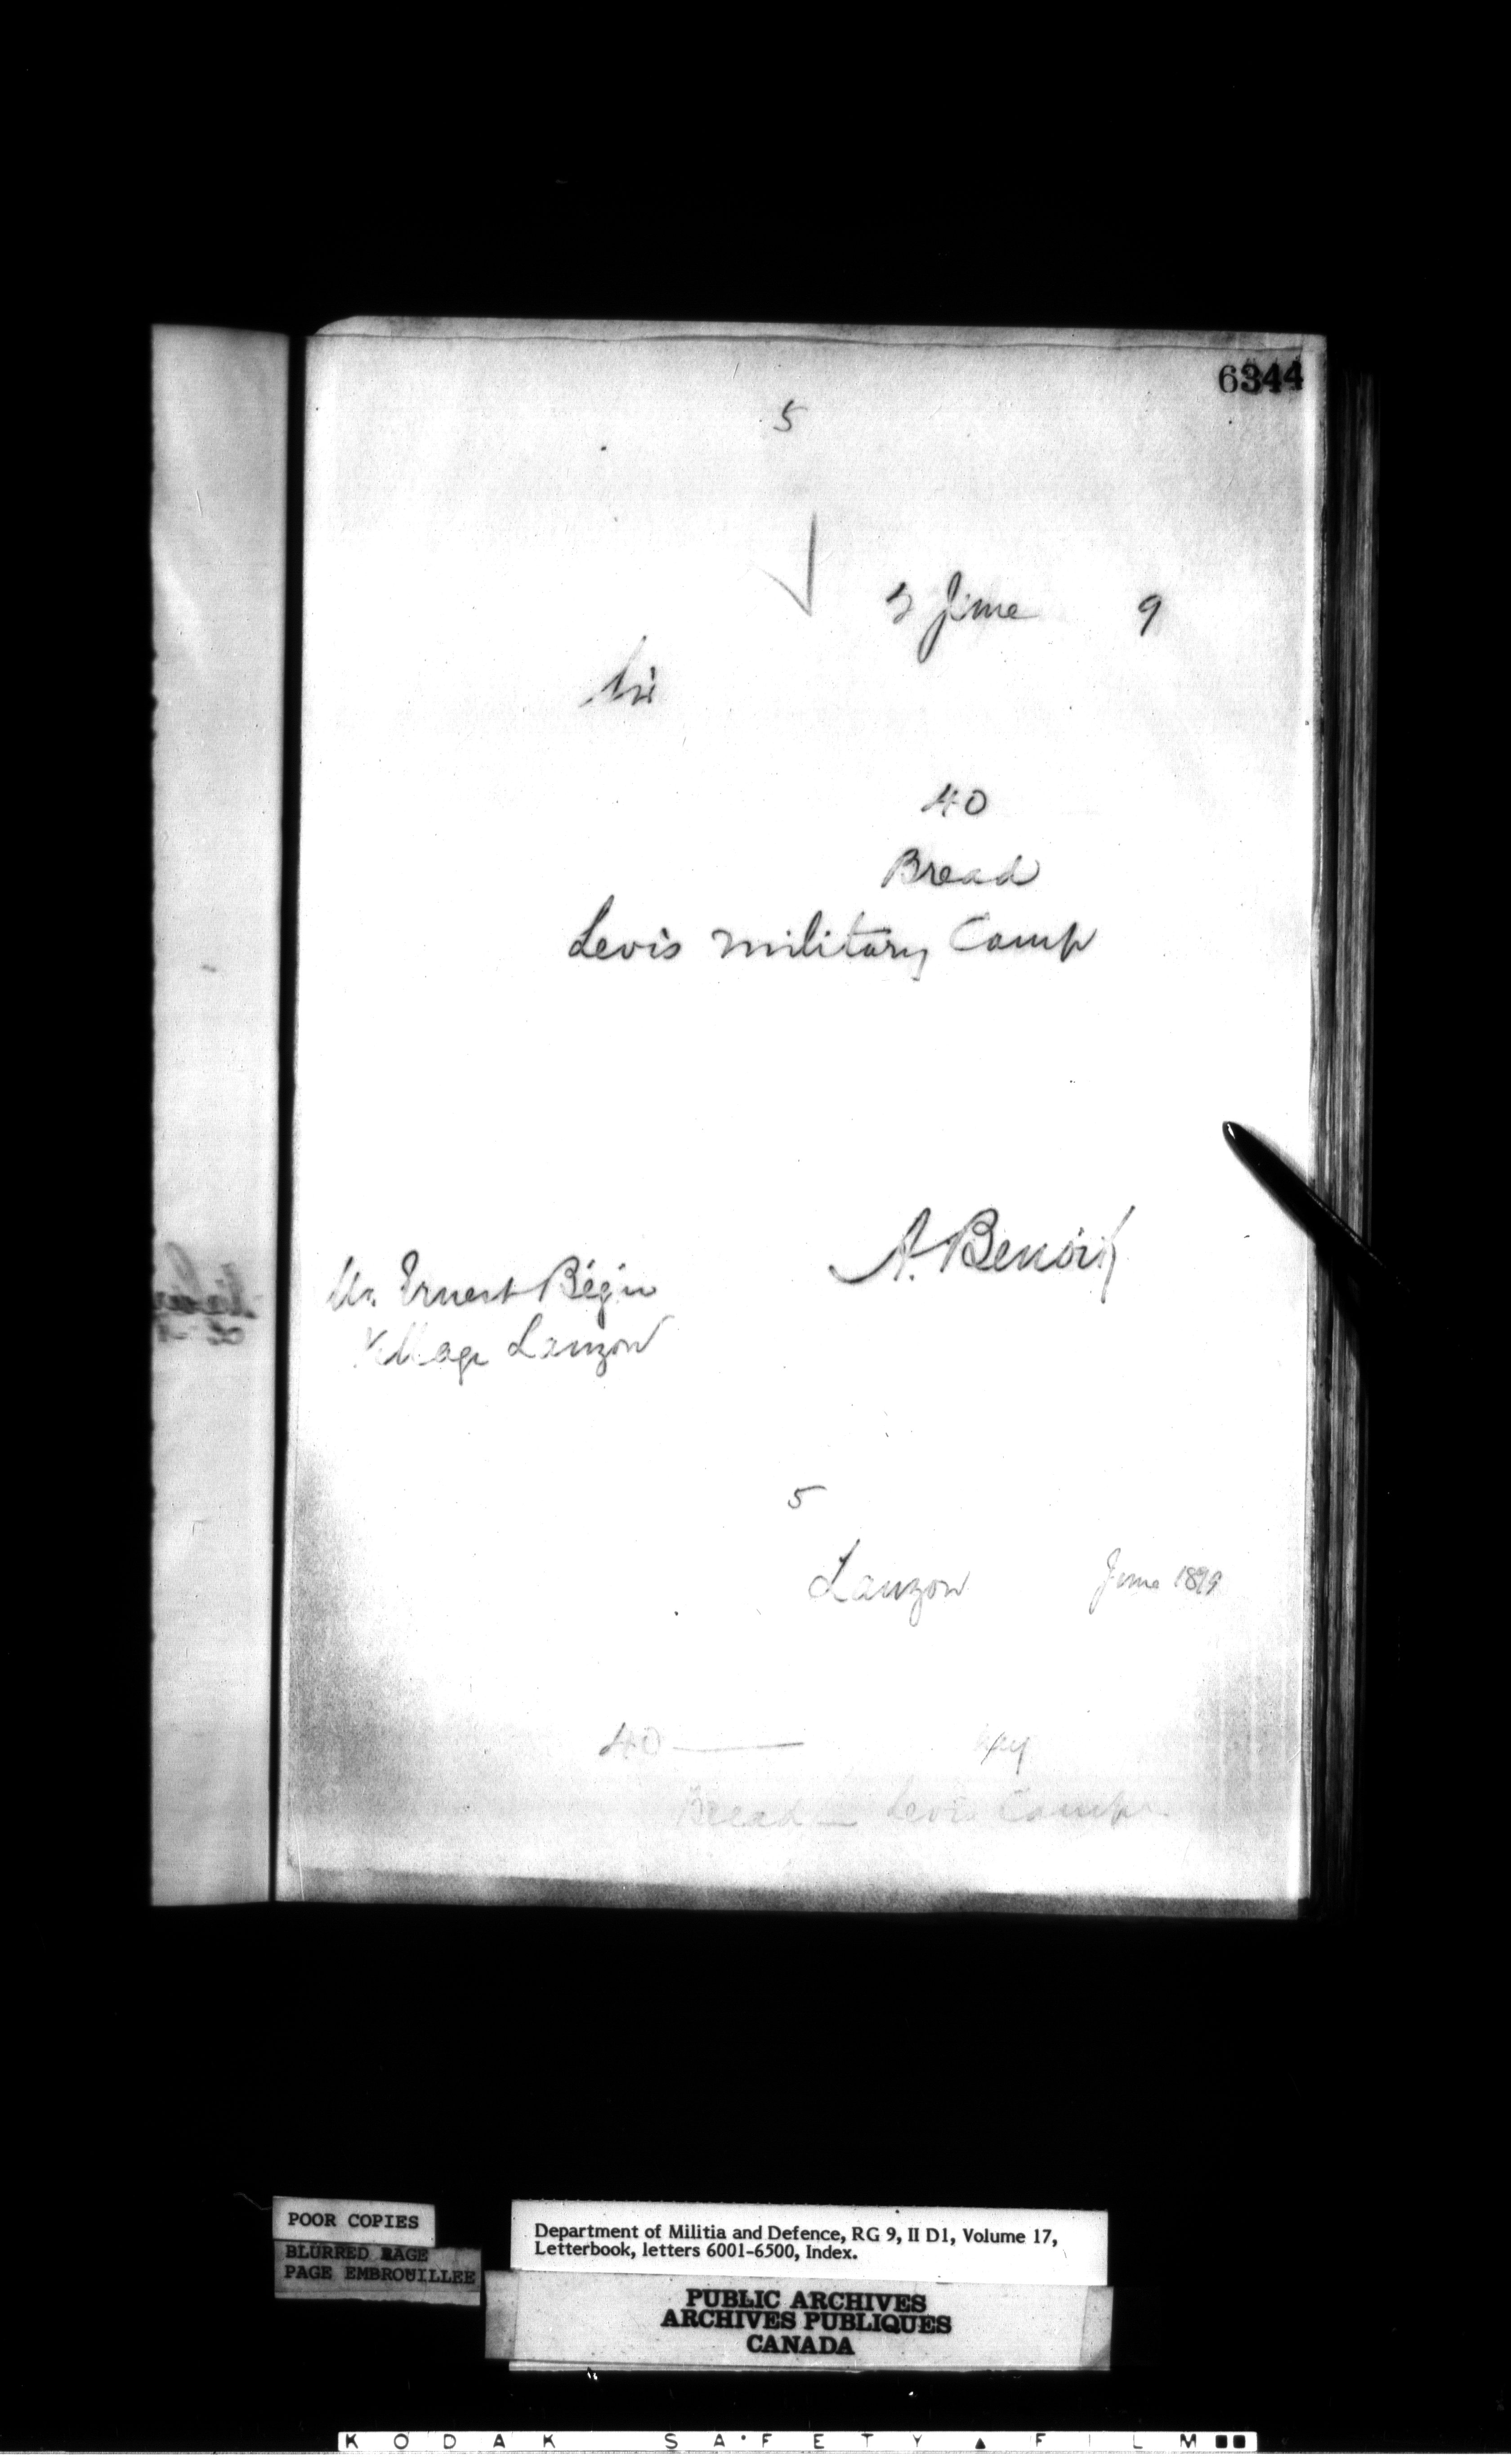 6344
5
2 June 9
Sir
40
Bread
Levis Military Camp
A. Benoit
Mr. Ernest Bégin
Village Lauzon
5
Lauzon June 1899
40 —
Bread — Levis Camp
POOR COPIES
BLURRED PAGE
PAGE EMBROUILLEE
Department of Militia and Defence, RG 9, II D1, Volume 17,
Letterbook, letters 6001-6500, Index.
PUBLIC ARCHIVES
ARCHIVES PUBLIQUES
CANADA
KODAK SAFETY FILM